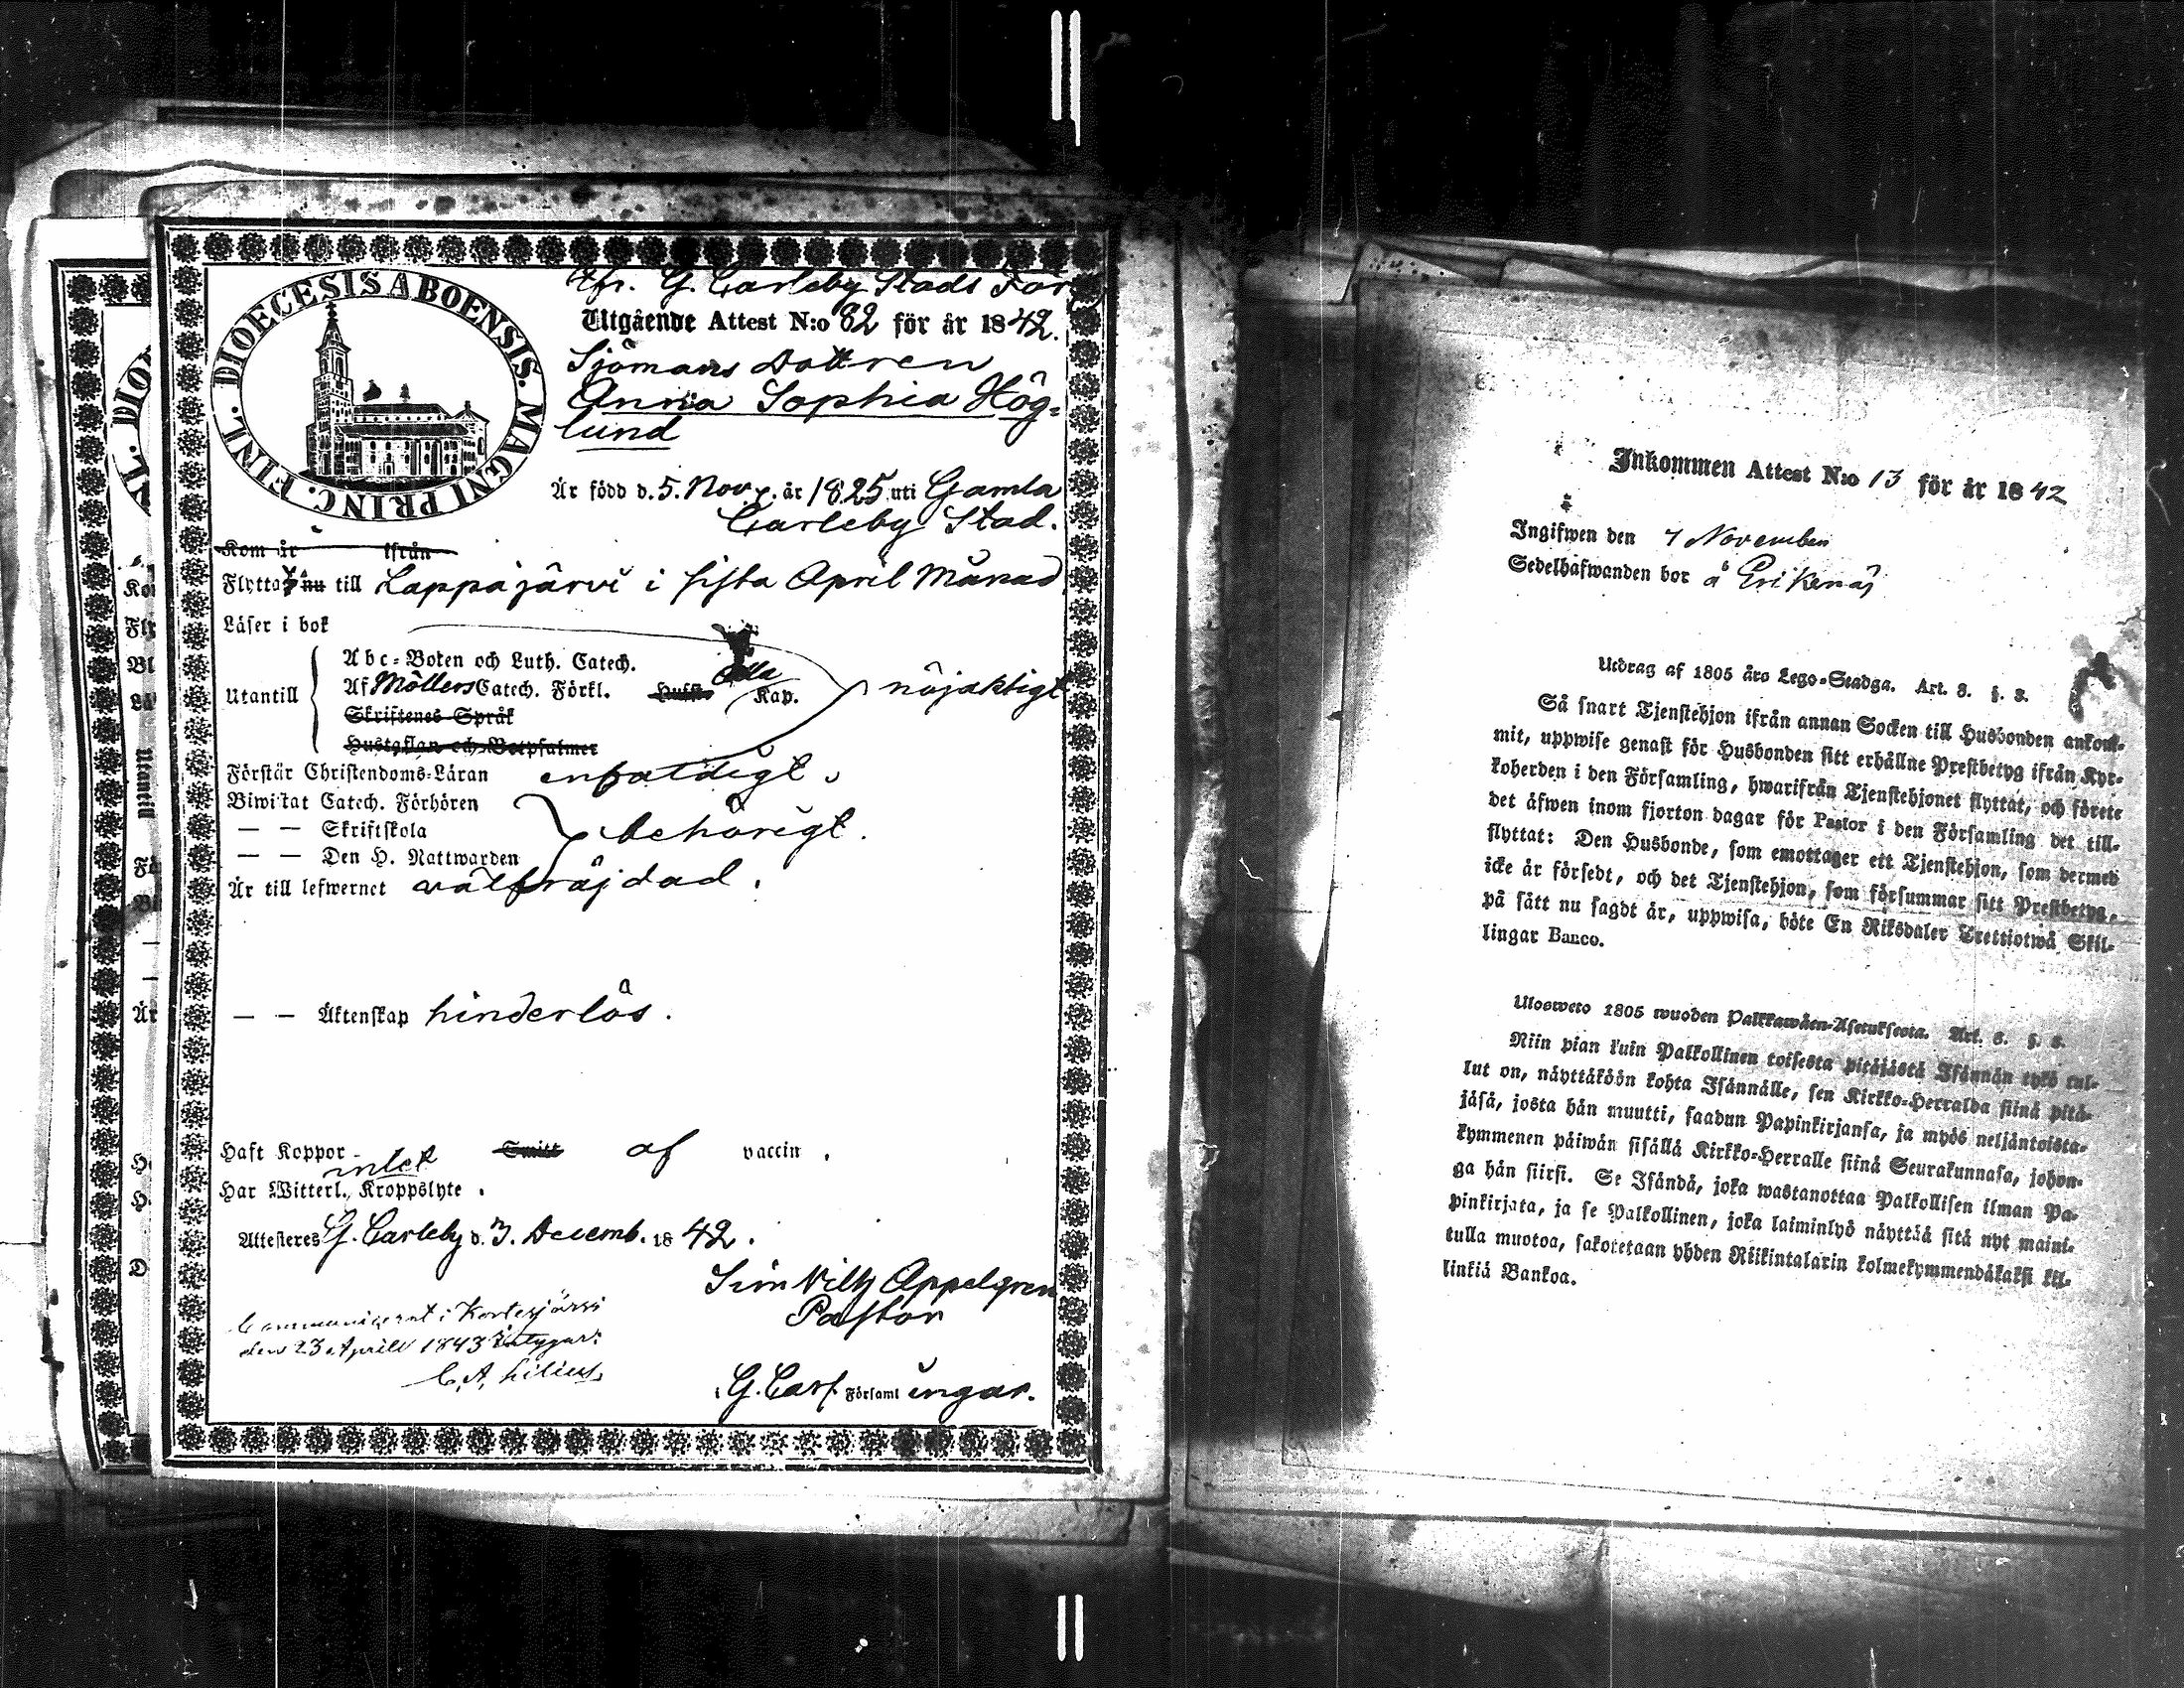 DIOECESIS ABOENSIS. MAGNI PRINC. FINL.
Ifr. G. Carleby Stads För
Utgående Attest N:o 82 för år 1842.
Sjömans Dottren
Anna Sophia Hög=
lund
Är född d. 5. Nov. år 1825 uti Gamla
Carleby Stad.
Kom år ifrån
Flytta nu till Lappajärvi i sista April Månad
Läser i bok
Abc-Boken och Luth. Catech.
Utantill Af Möllers Catech. Förkl. Alla Kap. nöjaktigt
Skriftenes Språk
Hustaflan och Botpsalmer
Förstår Christendoms-Läran enfaldigt.
Biwistat Catech. Förhören
— — Skriftskola behörigt.
— — Den H. Nattwarden
Är till lefwernet välfräjdad.
— — Äktenskap hinderlös.
Haft Koppor - af vaccin.
intet
Har Witterl. Kroppslyte.
Attesteras G. Carleby d. 3. Decemb. 1842.
Sim Vilh Appelgren
Pastor
Communicerat i Kortesjärvi
den 23 Aprill 1843 intygar:
C. A. Lilius
G. Carl. Församl ungar.
Inkommen Attest N:o 13 för år 1842
Ingifwen den 7 November
Sedelhafwanden bor å Eriksnäs
Utdrag af 1805 års Lego-Stadga. Art. 3. §. 3.
Så snart Tjenstehjon ifrån annan Socken till Husbonden ankom-
mit, uppwise genast för Husbonden sitt erhållne Prestbetyg ifrån Kyr-
koherden i den Församling, hwarifrån Tjenstehjonet flyttat, och förete
det äfwen inom fjorton dagar för Pastor i den Församling det till-
flyttat: Den Husbonde, som emottager ett Tjenstehjon, som dermed
icke är försedt, och det Tjenstehjon, som försummar sitt Prestbetyg,
på sätt nu sagdt är, uppwisa, böte En Riksdaler Trettiotwå Skil-
lingar Banco.
Ulosweto 1805 wuoden Palkkawäen-Asetuksesta. Art. 3. §. 3.
Niin pian kuin Palkollinen toisesta pitäjästä Isännän tykö tul-
lut on, näyttäköön kohta Isännälle, sen Kirkko-Herralda siinä pitä-
jäsä, josta hän muutti, saadun Papinkirjansa, ja myös neljäntoista-
kymmenen päiwän sisällä Kirkko-Herralle siinä Seurakunnasa, johon-
ga hän siirsi. Se Isändä, joka wastanottaa Palkollisen ilman Pa-
pinkirjata, ja se Palkollinen, joka laiminlyö näyttää sitä nyt maini-
tulla muotoa, sakotetaan yhden Riikintalarin kolmekymmendäkaksi kil-
linkiä Bankoa.